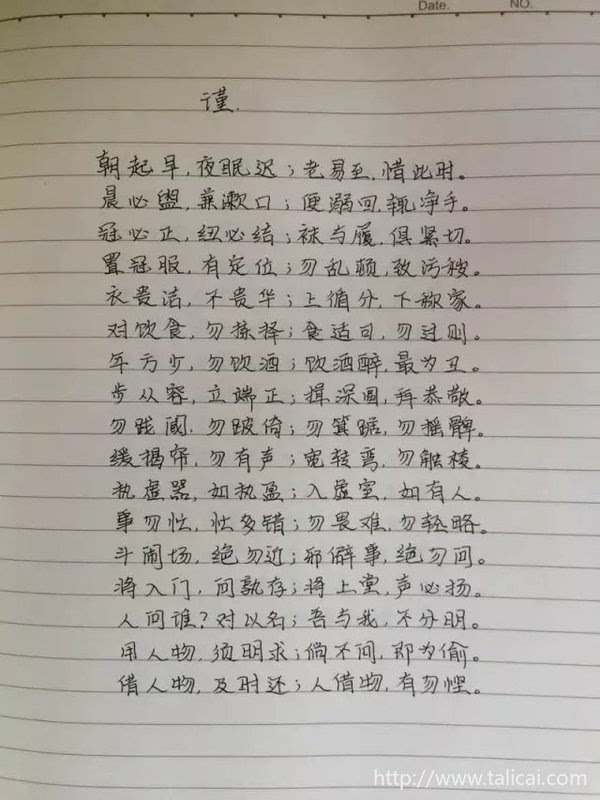 Date. NO.
谨.
朝起早,夜眠迟;老易至,惜此时。
晨必盥,兼漱口;便溺回,辄净手。
冠必正,纽必结;袜与履,俱紧切。
置冠服,有定位;勿乱顿,致污秽。
衣贵洁,不贵华;上循分,下称家。
对饮食,勿拣择;食适可,勿过则。
年方少,勿饮酒;饮酒醉,最为丑。
步从容,立端正;揖深圆,拜恭敬。
勿践阈,勿跛倚;勿箕踞,勿摇髀。
缓揭帘,勿有声;宽转弯,勿触棱。
执虚器,如执盈;入虚室,如有人。
事勿忙,忙多错;勿畏难,勿轻略。
斗闹场,绝勿近;邪僻事,绝勿问。
将入门,问孰存;将上堂,声必扬。
人问谁?对以名;吾与我,不分明。
用人物,须明求;倘不问,即为偷。
借人物,及时还;人借物,有勿悭。
http://www.talicai.com